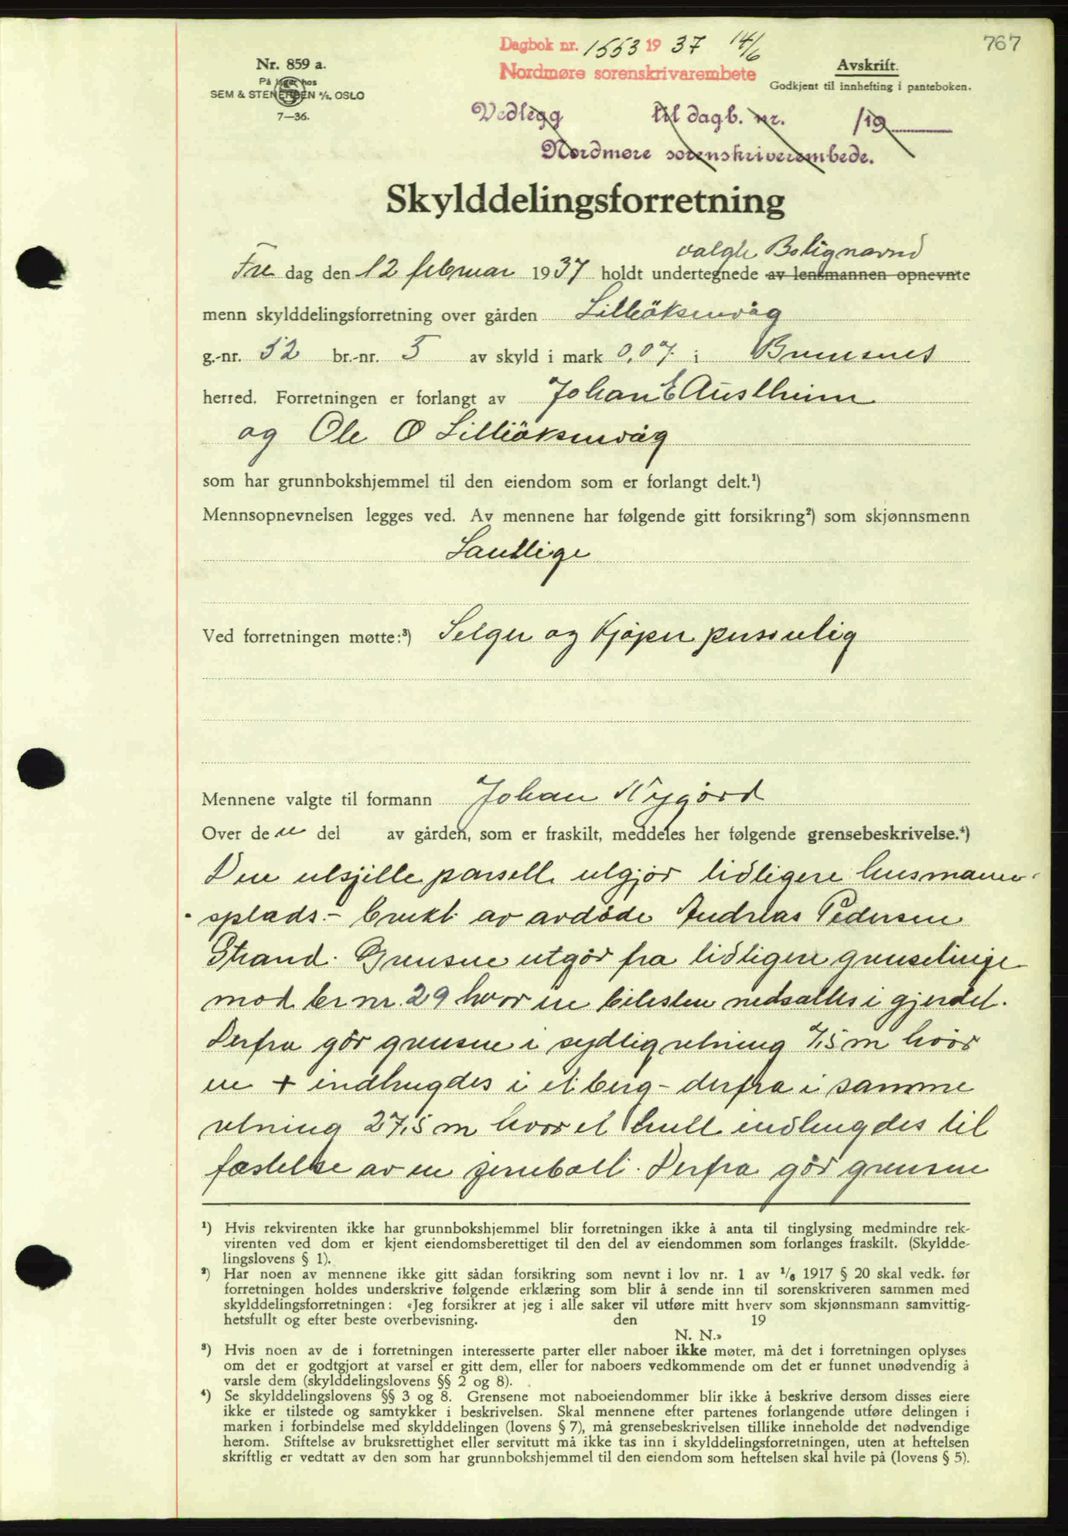 767
Dagbok nr. 1553 1937 14/6
Nordmøre sorenskrivarembete
Nr. 859 a.
På lager hos
SEM & STENERSEN A/S. OSLO
7—36.
Avskrift.
Godkjent til innhefting i panteboken.
Vedlegg til dagb. nr. /19
Nordmøre sorenskriverembede.
Skylddelingsforretning
valgte Bolignavnd
Fre dag den 12 februar 1937 holdt undertegnede av lensmannen opnevnte
menn skylddelingsforretning over gården Lilleöksenvåg
g.-nr. 52 br.-nr. 5 av skyld i mark 0,07 i Bremsnes
herred. Forretningen er forlangt av Johan E Austheim
og Ole O Lilleöksenvåg
som har grunnbokshjemmel til den eiendom som er forlangt delt.¹)
Mennsopnevnelsen legges ved. Av mennene har følgende gitt forsikring²) som skjønnsmenn
Samtlige
Ved forretningen møtte:³) Selger og Kjøper personlig
Mennene valgte til formann Johan Nygård
Over den del av gården, som er fraskilt, meddeles her følgende grensebeskrivelse.⁴)
Den utsjilte parsell utgjør tidligere husmanns-
splads - brukt av avdöde Andreas Pedersen
Strand. Grensen utgår fra tidligere grenselinje
mod br nr. 29 hvor en bitesten nedsattes i gjerdet.
Derfra går grensen i sydlig retning 7,5 m hvor
en + indhugdes i et berg - derfra i samme
retning 27,5 m hvor et hull indhugdes til
fæstelse av en jernbolt. Derfra går grensen
¹) Hvis rekvirenten ikke har grunnbokshjemmel blir forretningen ikke å anta til tinglysing medmindre rek-
virenten ved dom er kjent eiendomsberettiget til den del av eiendommen som forlanges fraskilt. (Skyldde-
lingslovens § 1).
²) Har noen av mennene ikke gitt sådan forsikring som nevnt i lov nr. 1 av 1/6 1917 § 20 skal vedk. før
forretningen holdes underskrive følgende erklæring som blir å sende inn til sorenskriveren sammen med
skylddelingsforretningen: «Jeg forsikrer at jeg i alle saker vil utføre mitt hverv som skjønnsmann samvittig-
hetsfullt og efter beste overbevisning. den 19
N. N.»
³) Hvis noen av de i forretningen interesserte parter eller naboer ikke møter, må det i forretningen oplyses
om det er godtgjort at varsel er gitt dem, eller for naboers vedkommende om det er funnet unødvendig å
varsle dem (skylddelingslovens §§ 2 og 8).
⁴) Se skylddelingslovens §§ 3 og 8. Grensene mot naboeiendommer blir ikke å beskrive dersom disses eiere
ikke er tilstede og samtykker i beskrivelsen. Skal mennene efter partenes forlangende utføre delingen i
marken i forbindelse med skylddelingen (lovens § 7), må grensebeskrivelsen tillike inneholde det nødvendige
herom. Stiftelse av bruksrettighet eller servitutt må ikke tas inn i skylddelingsforretningen, uten at heftelsen
skriftlig er vedtatt av den som har grunnbokshjemmel til den eiendom som heftelsen skal hvile på (lovens § 5).